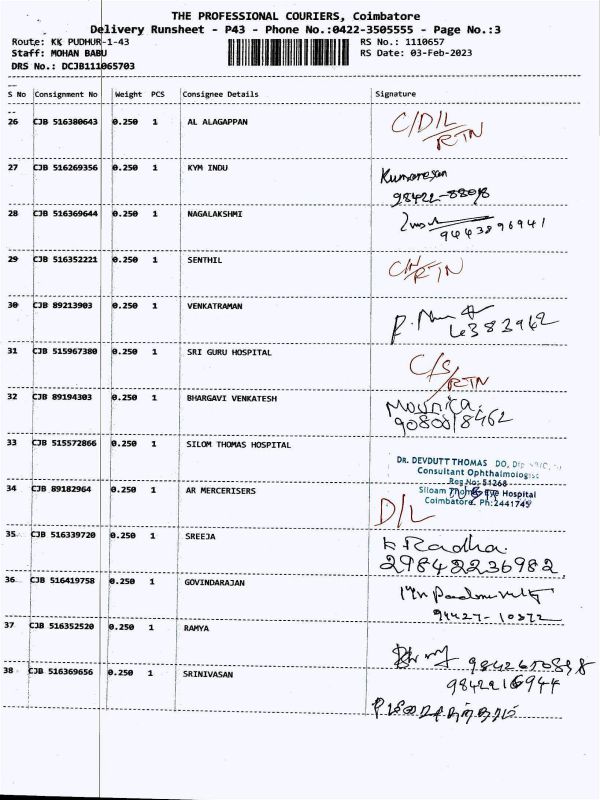 THE PROFESSIONAL COURIERS, Coimbatore
Delivery Runsheet - P43 - Phone No.:0422-3505555 - Page No.:3
Route: KK PUDHUR-1-43 RS No.: 1110657
Staff: MOHAN BABU RS Date: 03-Feb-2023
DRS No.: DCJB111065703
S No Consignment No Weight PCS Consignee Details Signature
26 CJB 516380643 0.250 1 AL ALAGAPPAN C/D/L
RTN
27 CJB 516269356 0.250 1 KYM INDU Kumaresan
98422-88098
28 CJB 516369644 0.250 1 NAGALAKSHMI
9443896941
29 CJB 516352221 0.250 1 SENTHIL C/N/RTN
30 CJB 89213903 0.250 1 VENKATRAMAN
6383962
31 CJB 515967380 0.250 1 SRI GURU HOSPITAL C/S/
RTN
32 CJB 89194303 0.250 1 BHARGAVI VENKATESH Mounica
9080018462
33 CJB 515572866 0.250 1 SILOM THOMAS HOSPITAL DR. DEVDUTT THOMAS DO,
Consultant Ophthalmologist
Reg No: 51268
34 CJB 89182964 0.250 1 AR MERCERISERS Siloam Thomas Eye Hospital
Coimbatore. Ph:2441745
D/L
35 CJB 516339720 0.250 1 SREEJA K Radha
29842236982
36 CJB 516419758 0.250 1 GOVINDARAJAN
94427-10372
37 CJB 516352520 0.250 1 RAMYA
9842650898
38 CJB 516369656 0.250 1 SRINIVASAN 9842216944